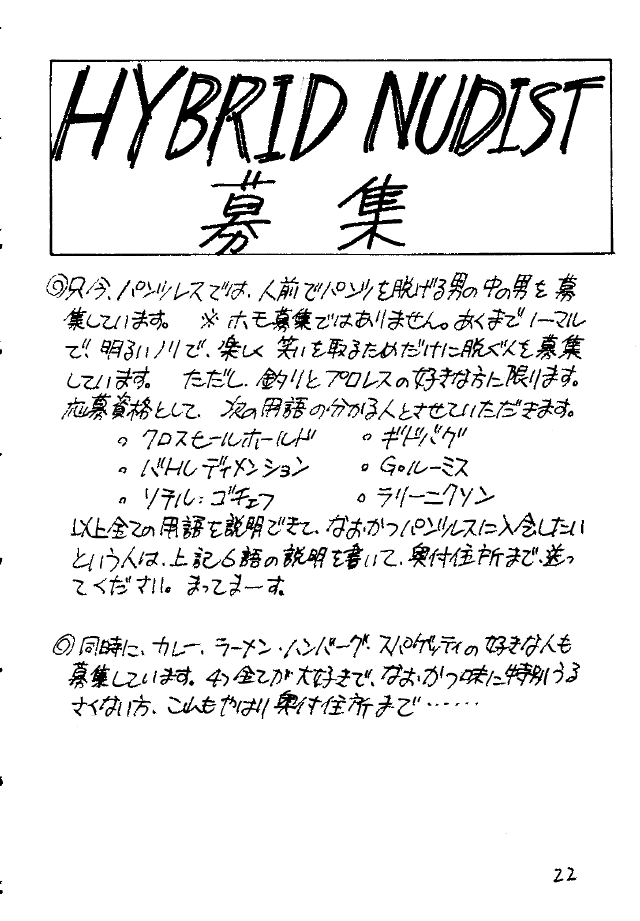 HYBRID NUDIST
募集
◎只今、パンツレスでは、人前でパンツを脱げる男の中の男を募
集しています。 ※ホモ募集ではありません。あくまでノーマル
で、明るいノリで、楽しく笑いを取るためだけに脱ぐ人を募集
しています。 ただし、釣りとプロレスの好きな方に限ります。
応募資格として、次の用語の分かる人とさせていただきます。
。クロスセールホールド 。ギドバグ
。バトルディメンション 。Goルーミス
。ソテル:ゴチェフ 。ラリーニクソン
以上全ての用語を説明できて、なおかつパンツレスに入会したい
という人は、上記6語の説明を書いて、奥付住所まで、送っ
てください。まってまーす。
◎同時に、カレー、ラーメン・ハンバーグ・スパゲッティの好きな人も
募集しています。4つ全てが大好きで、なおかつ味に特別うる
さくない方、これもやはり奥付住所まで……
22